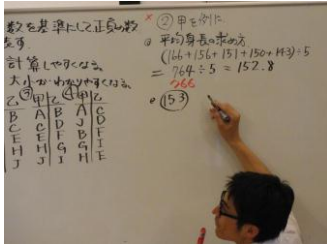 数を基準にして正負の数
を す.
計算しやすくなる.
大小がわかりやすくなる.
乙 甲 乙 甲 乙
B A B A C
C C D J D
E E F B F
H H G G I
J J I H E
× ② 甲を例に.
平均身長の求め方
(166+156+151+150+143)÷5
= 764÷5 = 152.8
766
153